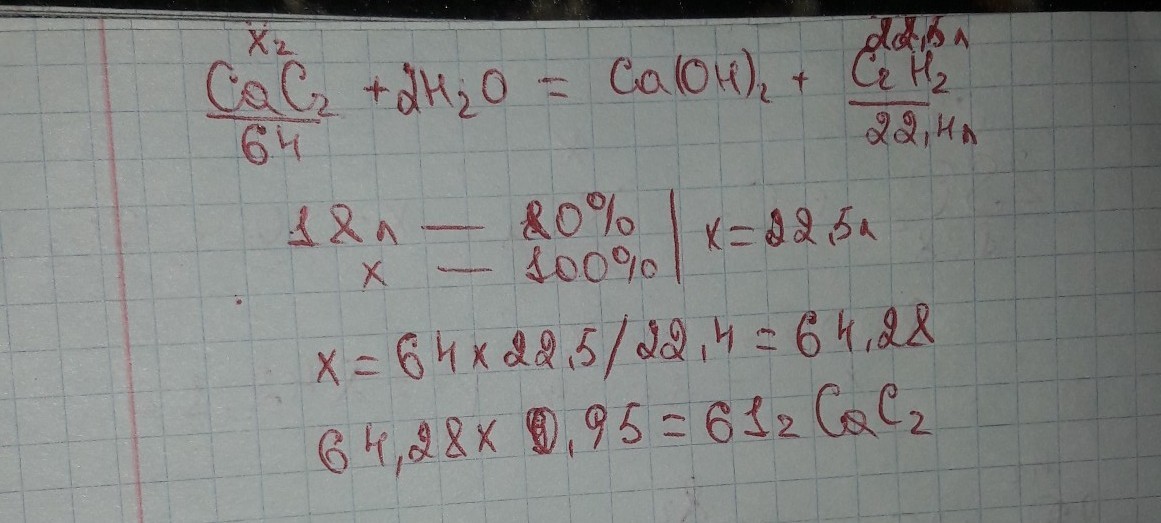 x г 22,5 л
CaC₂ + 2H₂O = Ca(OH)₂ + C₂H₂
64 22,4 л
18 л — 80% | x = 22,5 л
x — 100%
x = 64 x 22,5 / 22,4 = 64,28
64,28 x 0,95 = 61 г CaC₂